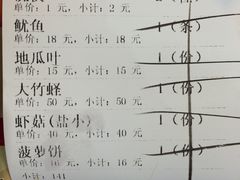 单价: 1 元, 小计: 2 元
鱿鱼 1(条)
单价: 18 元, 小计: 18 元
地瓜叶 1(份)
单价: 15 元, 小计: 15 元
大竹蛏 1(份)
单价: 50 元, 小计: 50 元
虾菇(盐小) 1(份)
单价: 40 元, 小计: 40 元
菠萝饼 1(份)
单价: 16 元, 小计: 16 元
小计: 141